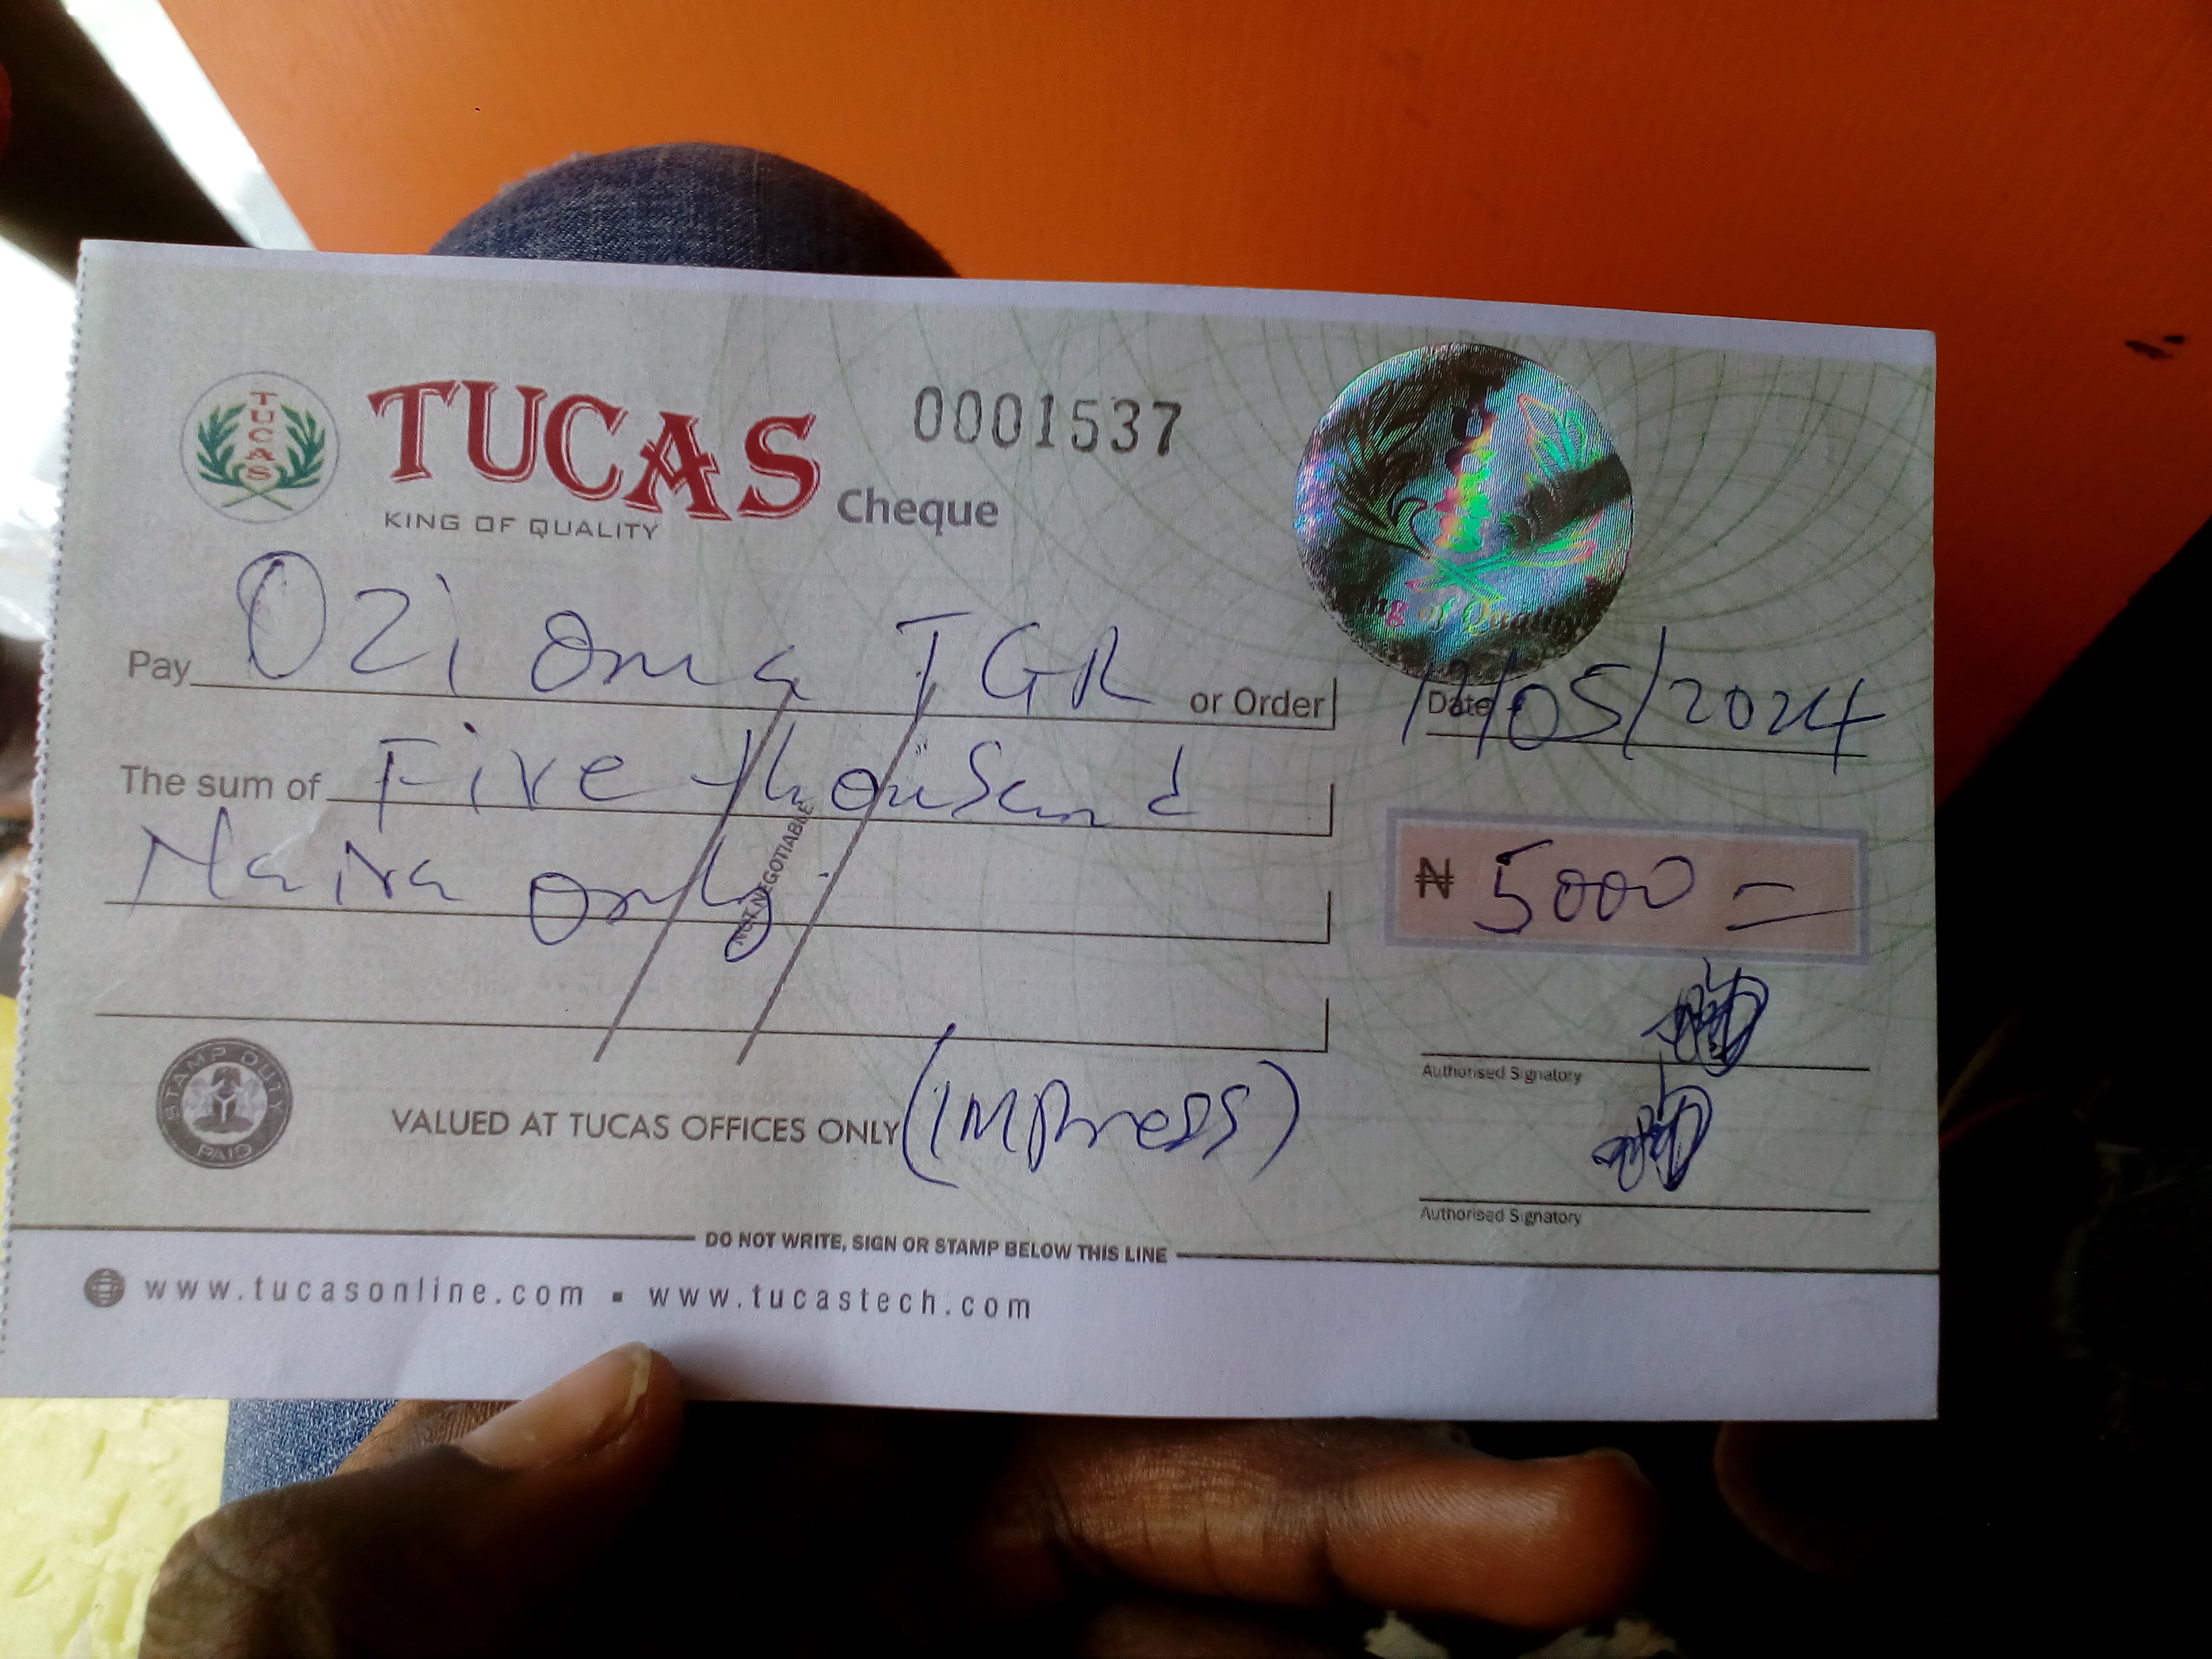 TUCAS
TUCAS
KING OF QUALITY
Cheque
0001537
King of Quality
Pay Ozioma TGR or Order
Date 12/05/2024
The sum of Five thousand
Naira only.
NOT NEGOTIABLE
₦ 5000 =
Authorised Signatory
STAMP DUTY
PAID
VALUED AT TUCAS OFFICES ONLY (IMPress)
Authorised Signatory
DO NOT WRITE, SIGN OR STAMP BELOW THIS LINE
www.tucasonline.com ▪ www.tucastech.com